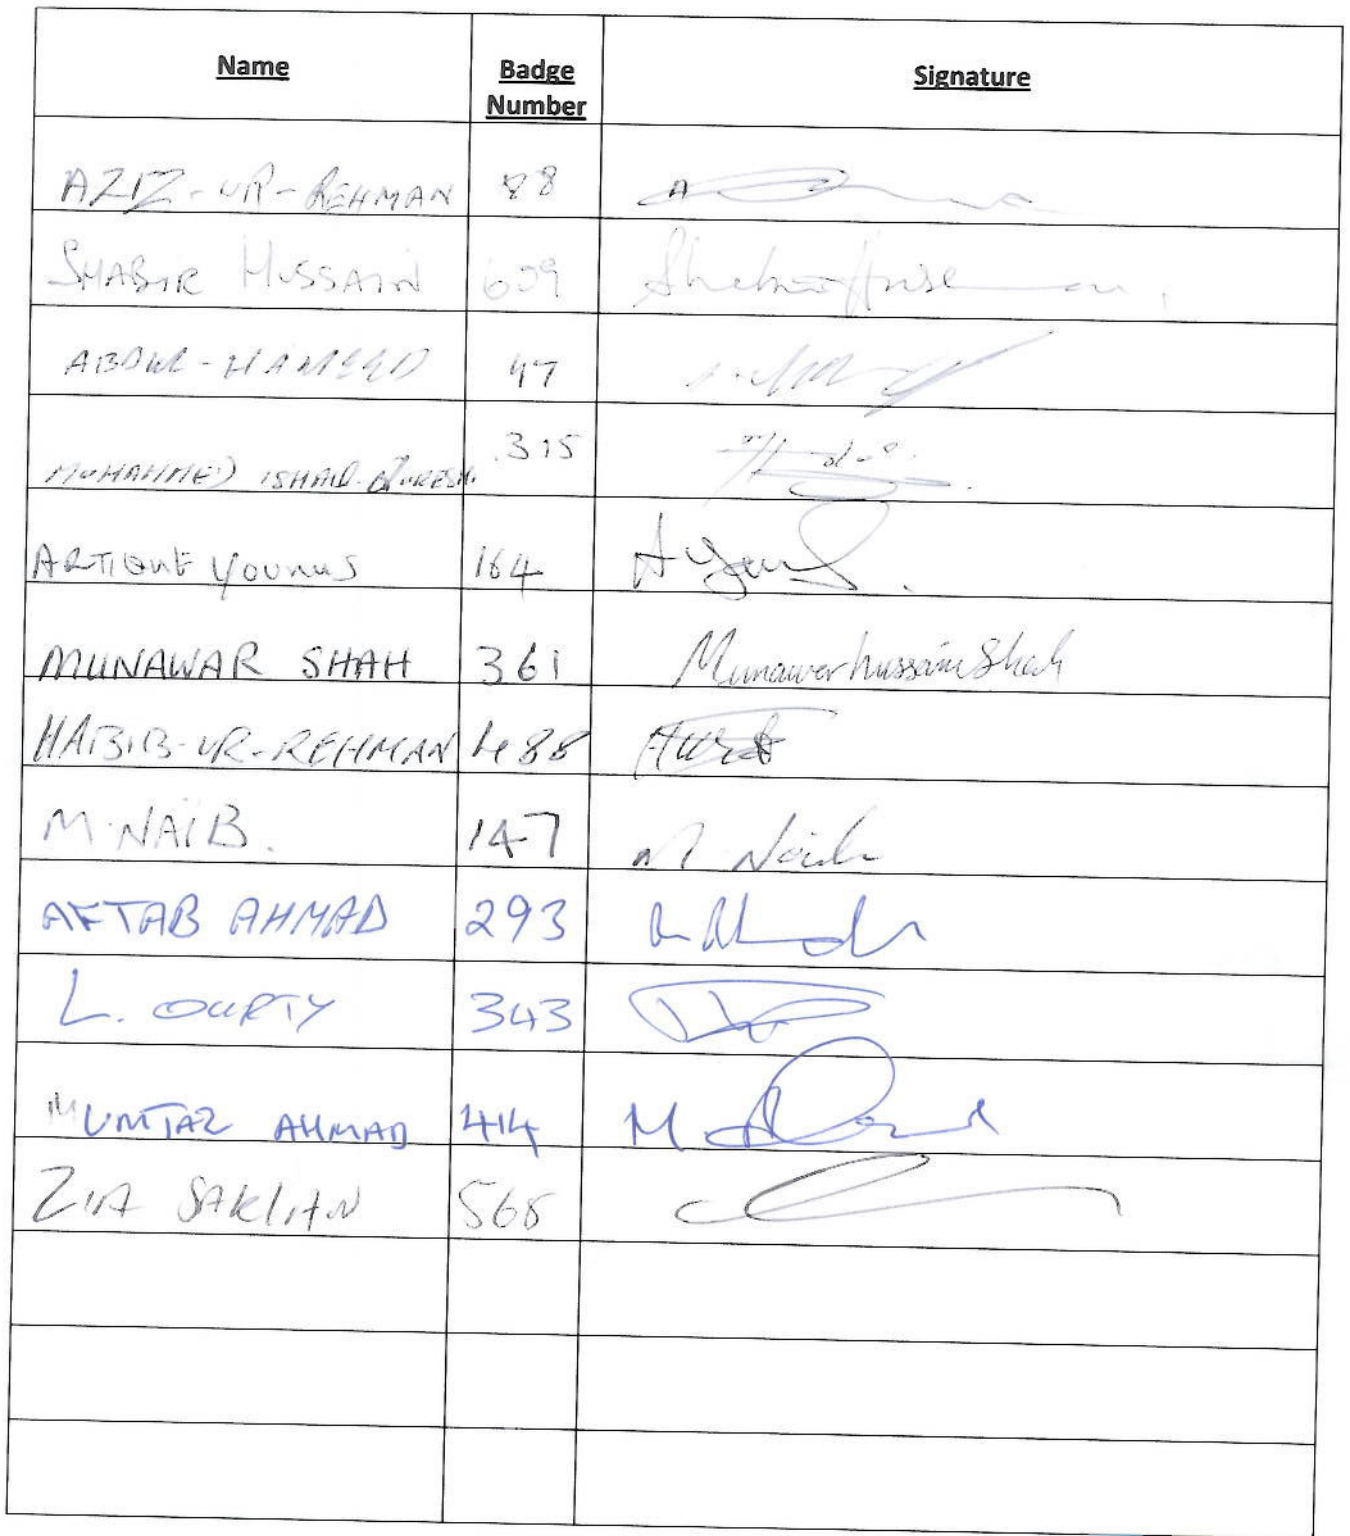 Name Badge Number Signature
AZIZ-UR-REHMAN 88
SHABIR HUSSAIN 609
ABDUL-HAMEED 47
MOHAMMED ISHAQ QURESHI 315
ARTIQUE YOUNUS 164 A Youn
MUNAWAR SHAH 361 Munawer hussain Shah
HABIB-UR-REHMAN 488
M. NAIB. 147 M Naib
AFTAB AHMAD 293
L. OURTY 343
MUMTAZ AHMAD 414
ZIA 568